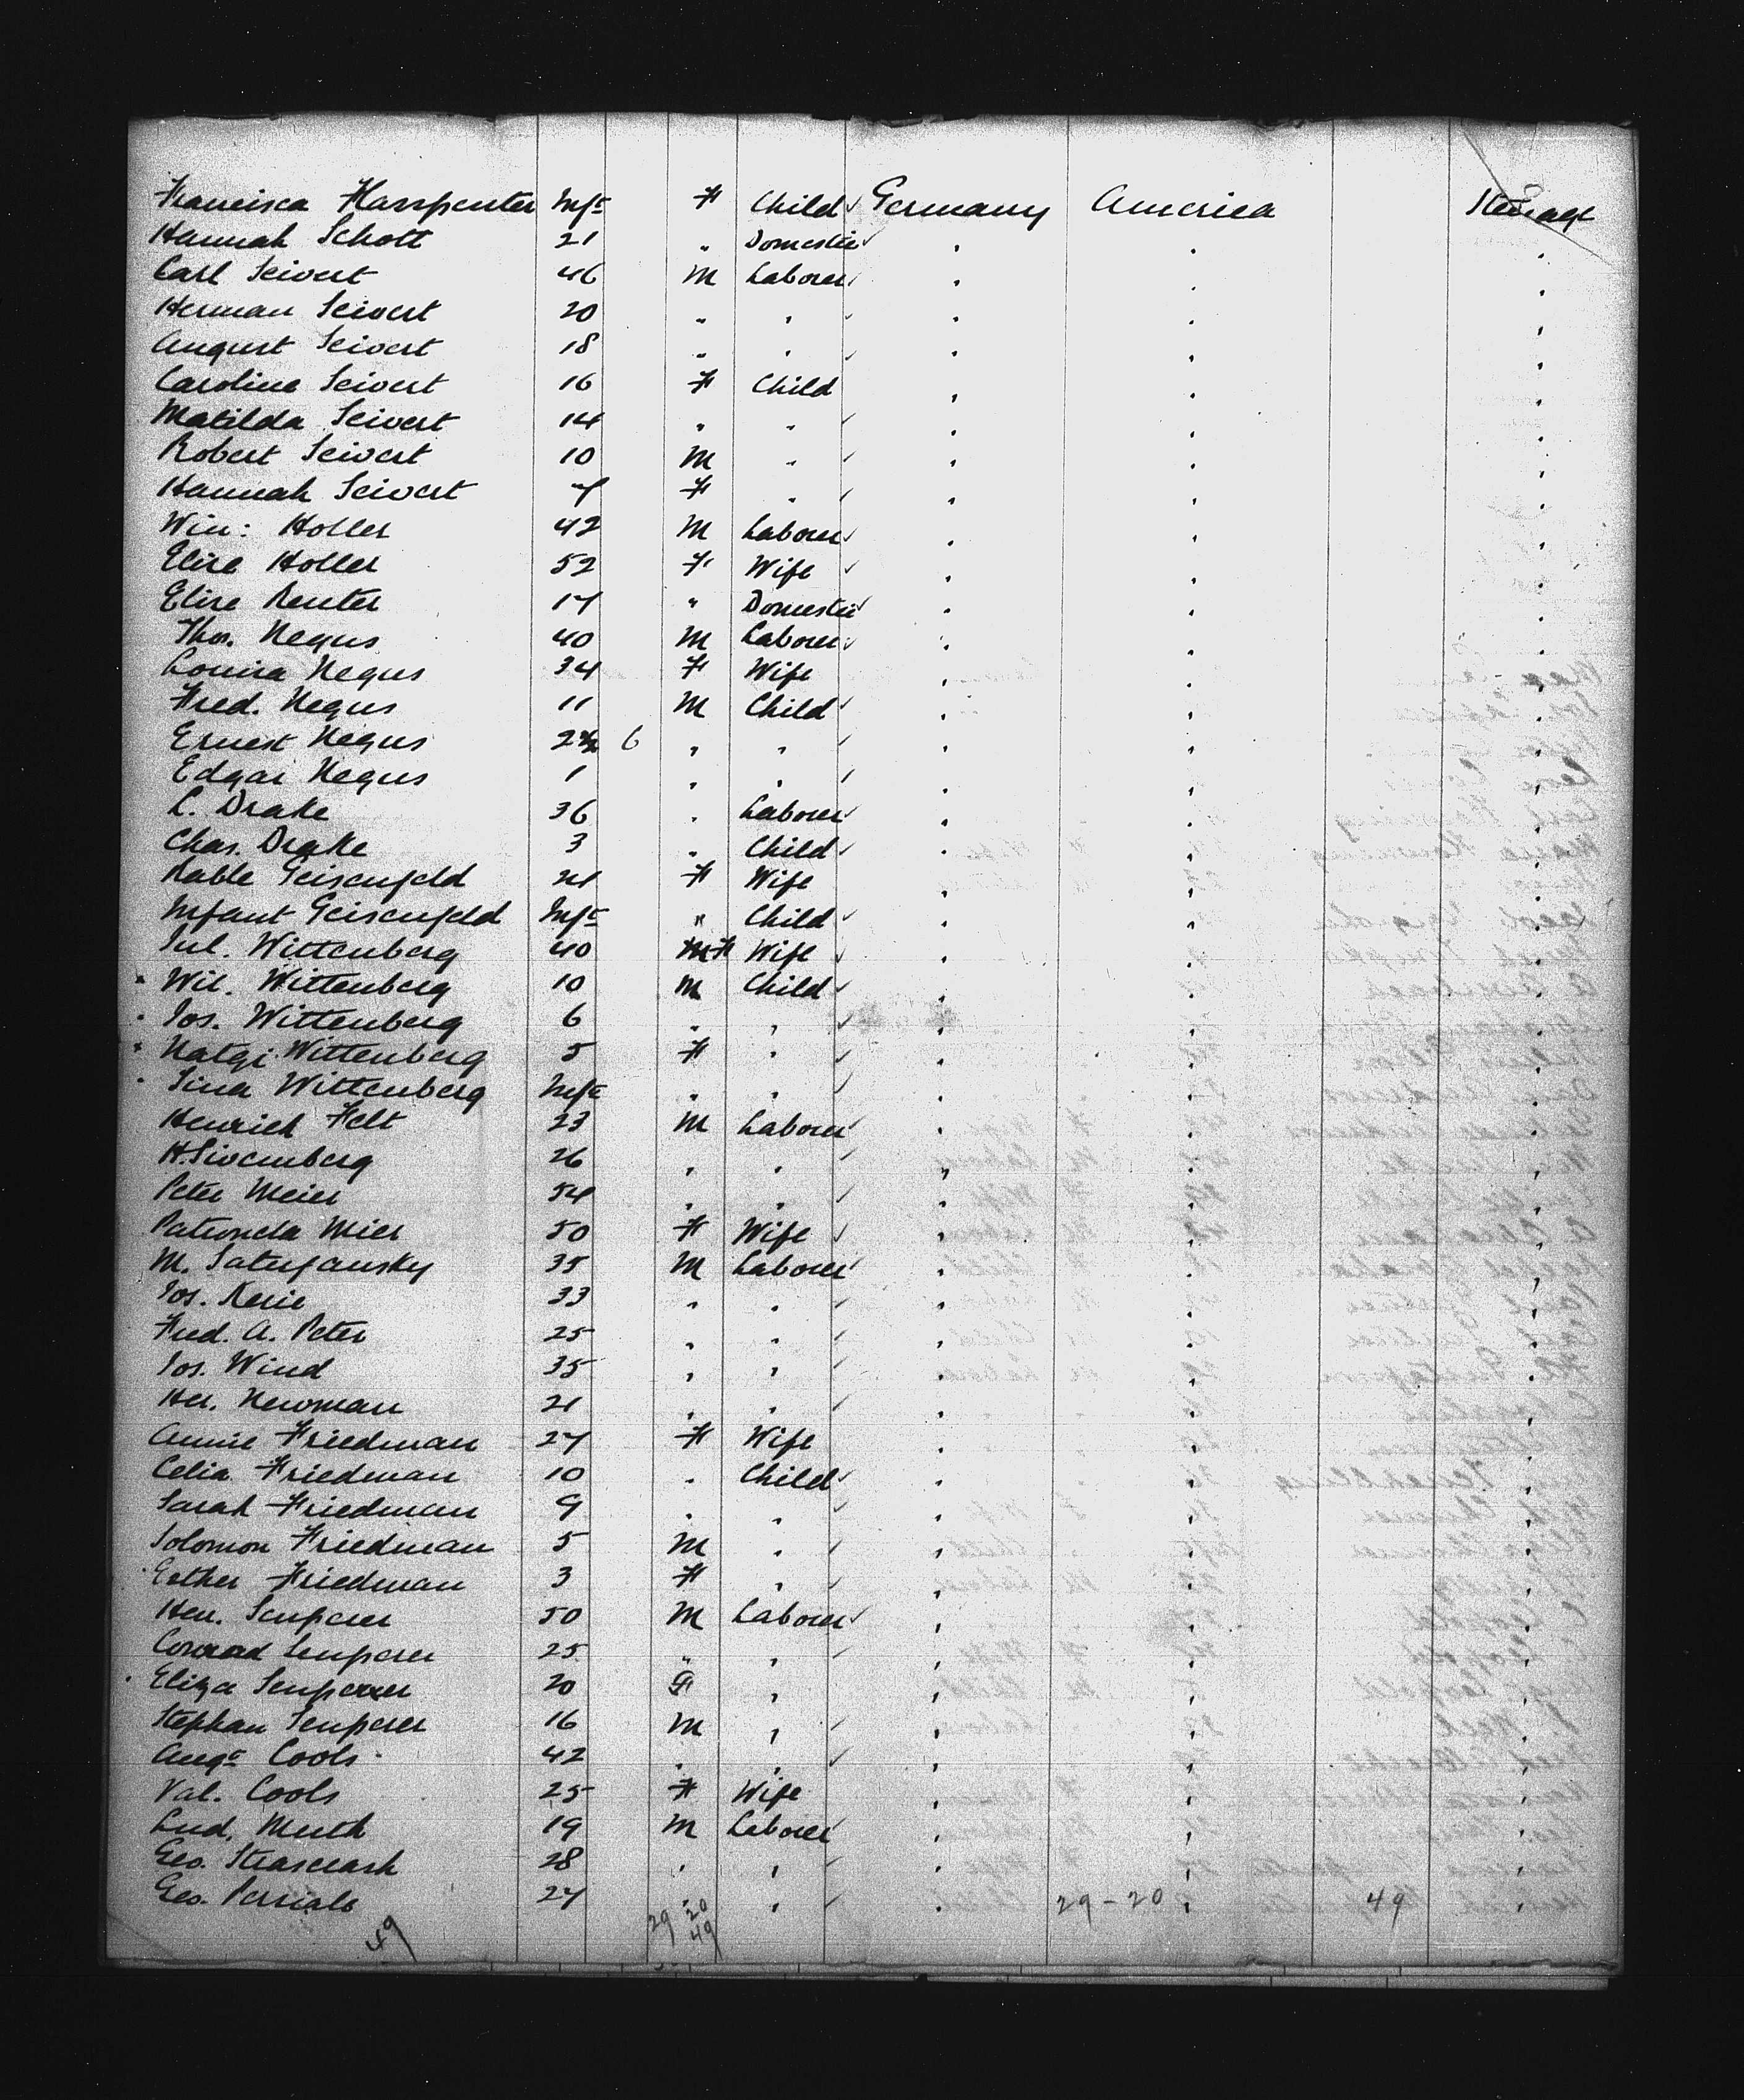 Francisca Harspenter Inft F Child Germany America Steerage
Hannah Schott 21 " Domestic " " "
Carl Seivert 46 M Laborer " " "
Herman Seivert 20 " " " " "
August Seivert 18 " " " " "
Caroline Seivert 16 F Child " " "
Matilda Seivert 14 " " " " "
Robert Seivert 10 M " " " "
Hannah Seivert 7 F " " " "
Wm: Holler 42 M Laborer " " "
Elise Holler 52 F Wife " " "
Elise Reuter 17 " Domestic " " "
Thos. Negus 40 M Laborer " " "
Louisa Negus 34 F Wife " " "
Fred. Negus 11 M Child " " "
Ernest Negus 2 6 " " " " "
Edgar Negus 1 " " " " "
L. Drake 36 " Laborer " " "
Chas. Drake 3 " Child " " "
Rable Geisenfeld 21 F Wife " " "
Infant Geisenfeld Inft " Child " " "
Jul. Wittenberg 40 F Wife " " "
Wil. Wittenberg 10 M Child " " "
Jos. Wittenberg 6 " " " " "
Natgi Wittenberg 5 F " " " "
Sina Wittenberg Inft " " " " "
Henrich Felt 23 M Laborer " " "
H. Sivemberg 26 " " " " "
Peter Meier 54 " " " " "
Patronela Mier 50 F Wife " " "
M. Satujansky 35 M Laborer " " "
Jos. Kerie 33 " " " " "
Fred. A. Peter 25 " " " " "
Jos. Wind 35 " " " " "
Her. Newman 21 " " " " "
Annie Friedman 27 F Wife " " "
Celia Friedman 10 " Child " " "
Sarah Friedman 9 " " " " "
Solomon Friedman 5 M " " " "
Esther Friedman 3 F " " " "
Hen. Semperer 50 M Laborer " " "
Conrad Semperer 25 " " " " "
Eliza Semperer 20 F " " " "
Stephan Semperer 16 M " " " "
Augt Cools 42 " " " " "
Val. Cools 25 F Wife " " "
Lud. Muth 19 M Laborer " " "
Geo. Straserash 28 " " " " "
Geo. Persialo 27 " " " 29-20 " 49 "
49 29 20
49